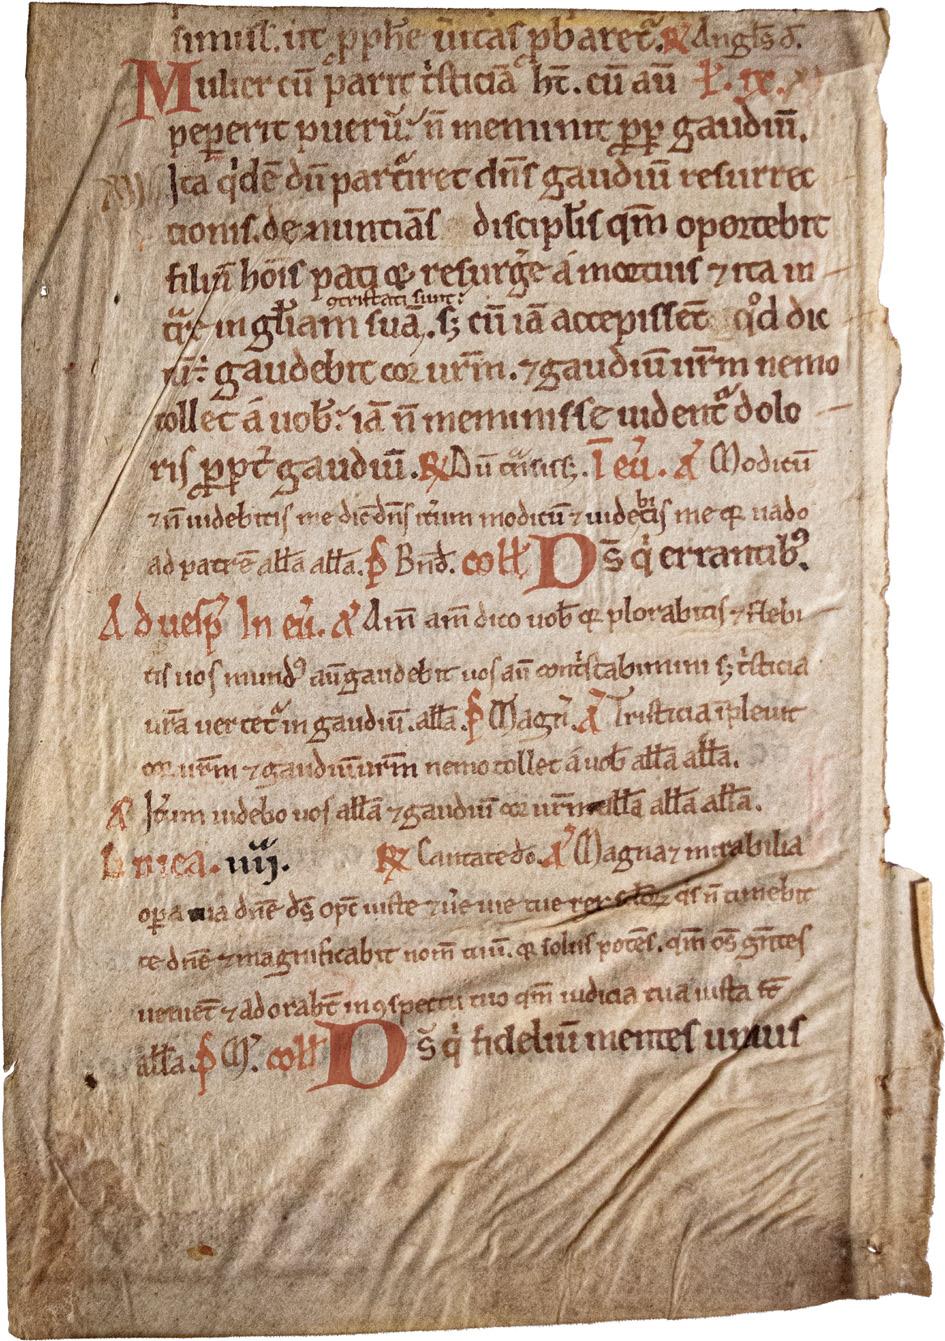 simul. ut ꝓph̅e u̅itas ꝓbaret᷑. ℟ Angl̅s d̅.
Mulier cu̅ parit t̍sticia̅ h̅t. cu̅ au̅ L̅. ix.
peperit pueru̅: n̅ meminit ꝓp gaudiu̅.
Ita q̍de̅ du̅ partiret᷑ dn̅s gaudiu̅ resurrec
tionis. denuntia̅s discipl̅is qm̅ oportebit
filiu̅ ho̅is pati & resurg̅e á mortuis ⁊ ita in
t᷑re in gl̅iam sua̅. ꝯtristati sunt: sꝫ cu̅ ia̅ accepisse̅t q̊d dic
tu̅: gaudebit cor ur̅m. ⁊ gaudiu̅ ur̅m nemo
tollet á uob̅: ia̅ n̅ meminisse uident᷑ dolo
ris ꝓpt̅ gaudiu̅. ℟ Du̅ t᷑nsissꝫ. I̅ eu̅. a᷑ Modicu̅
⁊ n̅ uidebitis me dic̅ dn̅s it̅um modicu̅ ⁊ uidebitis me q̅ uado
ad patre̅ all̅a all̅a. p̅s Bn̅d. coll̅ Ds̅ q̍ errantibꝰ.
Ad uesp̅ In eu̅. a᷑ Am̅ am̅ dico uob̅ q̅ plorabitis ⁊ flebi
tis uos mundꝰ au̅ gaudebit uos au̅ cont̍stabimini sꝫ t̍sticia
ur̅a uertet᷑ in gaudiu̅. all̅a. p̅s Magn̅. a᷑ Tristicia i̅pleuit
cor ur̅m ⁊ gaudiu̅ ur̅m nemo tollet á uob̅ all̅a all̅a.
a᷑ It̅um uidebo uos all̅a ⁊ gaudiu̅ cor ur̅m all̅a all̅a all̅a.
Dn̅ica. iiij. ℟ Cantate do. a᷑ Magna ⁊ mirabilia
op̅a tua dn̅e ds̅ op̅t iuste ⁊ u̅e uie tue rex qs̅ n̅ timebit
te dn̅e ⁊ magnificabit nom̅ tuu̅. q̅ solus pote̅s. qm̅ os̅ ge̅ntes
uenie̅t ⁊ adorabt̅ in ꝯspectu tuo qm̅ iudicia tua iusta s̅t
all̅a. p̅s M̅. coll̅ Ds̅ q̍ fideliu̅ mentes unius